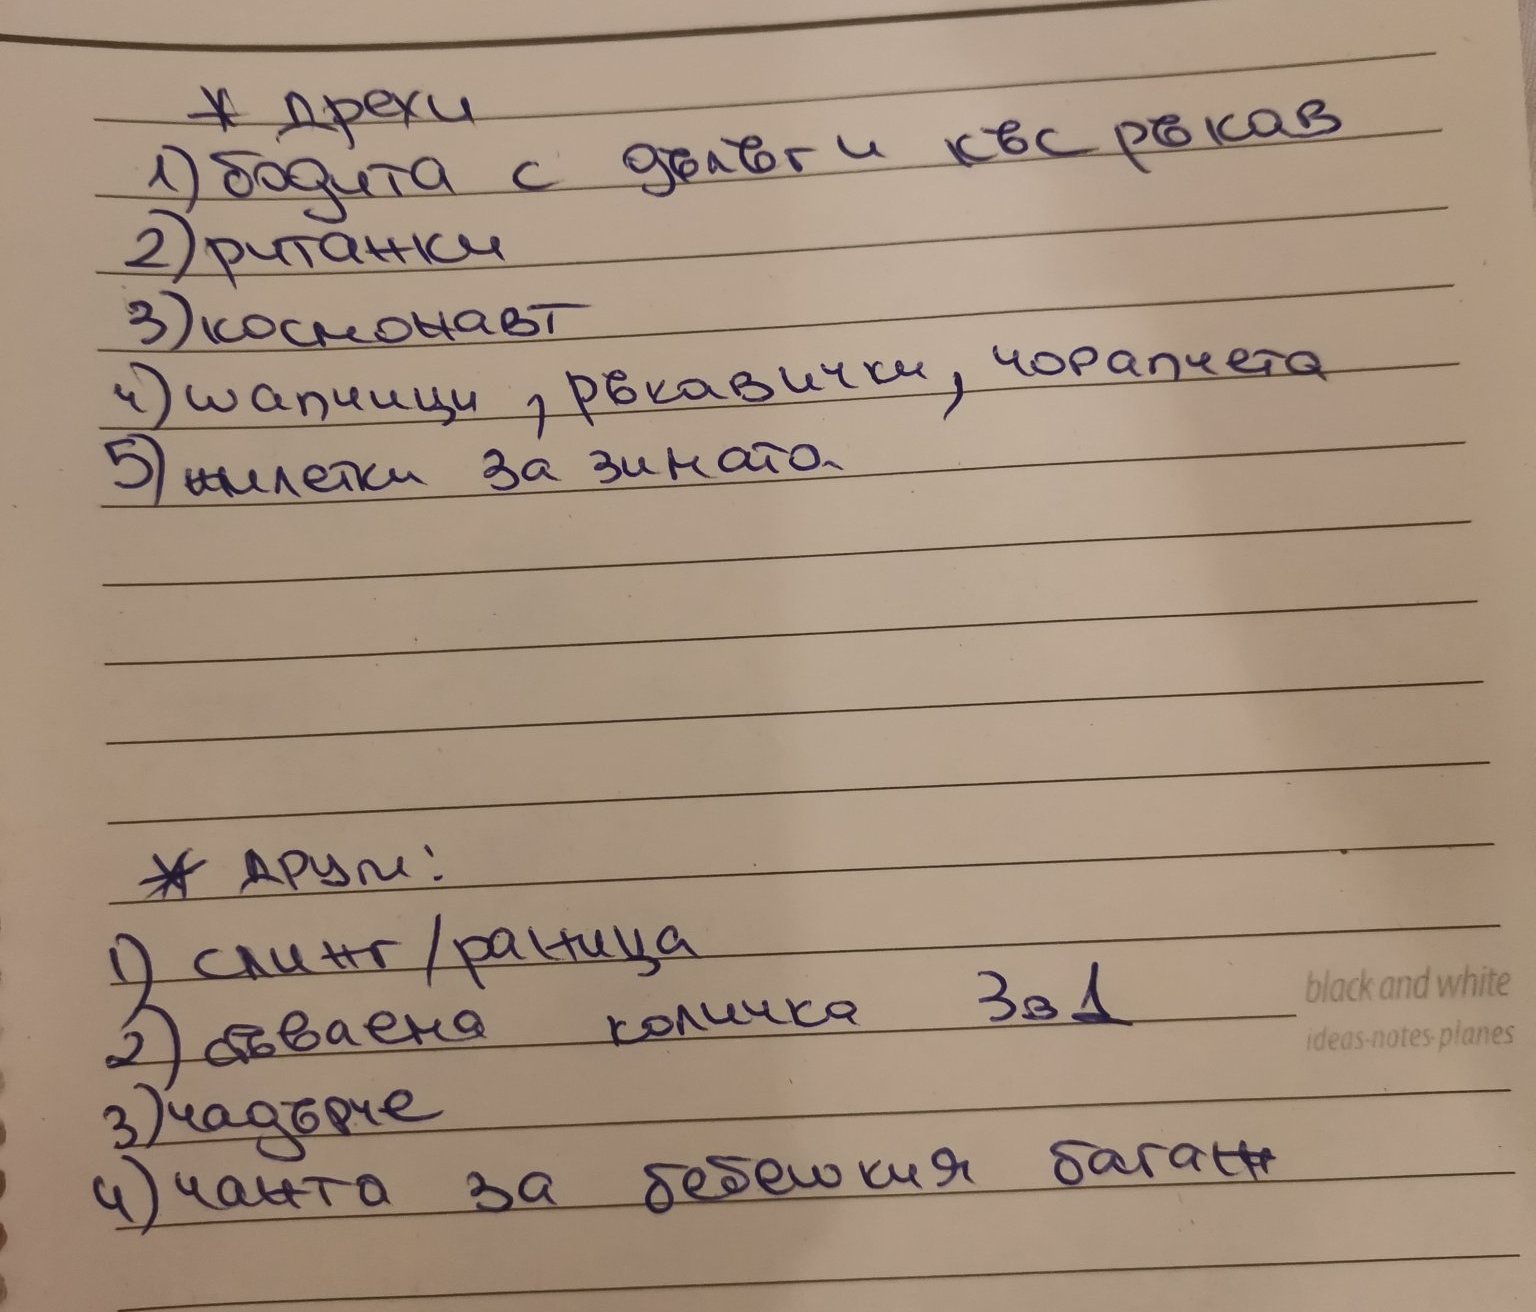 * Дрехи
1) бодита с дълъг и къс ръкав
2) ританки
3) космонавт
4) шапчици, ръкавички, чорапчета
5) жилетки за зимата
* Други:
1) слинг/раница
2) сгъваема количка 3в1
black and white
ideas-notes-planes
3) чадърче
4) чанта за бебешкия багаж